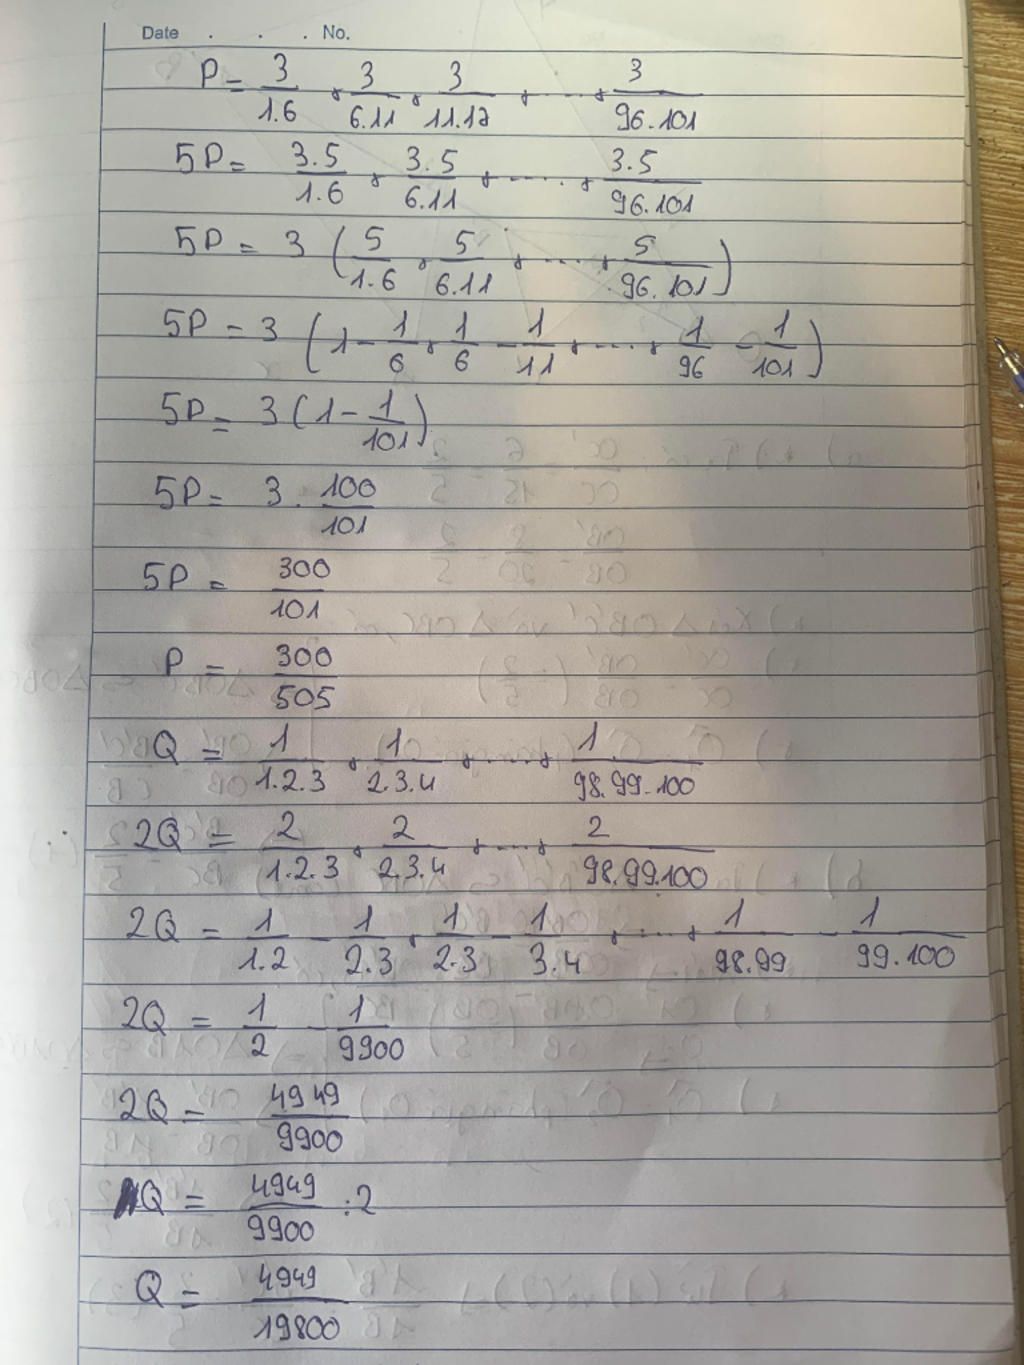 Date . . . No.
P = 3/1.6 + 3/6.11 + 3/11.12 + .... + 3/96.101
5P = 3.5/1.6 + 3.5/6.11 + .... + 3.5/96.101
5P = 3 (5/1.6 + 5/6.11 + .... + 5/96.101)
5P = 3 (1 - 1/6 + 1/6 - 1/11 + .... + 1/96 - 1/101)
5P = 3 (1 - 1/101)
5P = 3 . 100/101
5P = 300/101
P = 300/505
Q = 1/1.2.3 + 1/2.3.4 + .... + 1/98.99.100
2Q = 2/1.2.3 + 2/2.3.4 + .... + 2/98.99.100
2Q = 1/1.2 - 1/2.3 + 1/2.3 - 1/3.4 + .... + 1/98.99 - 1/99.100
2Q = 1/2 - 1/9900
2Q = 4949/9900
Q = 4949/9900 : 2
Q = 4949/19800